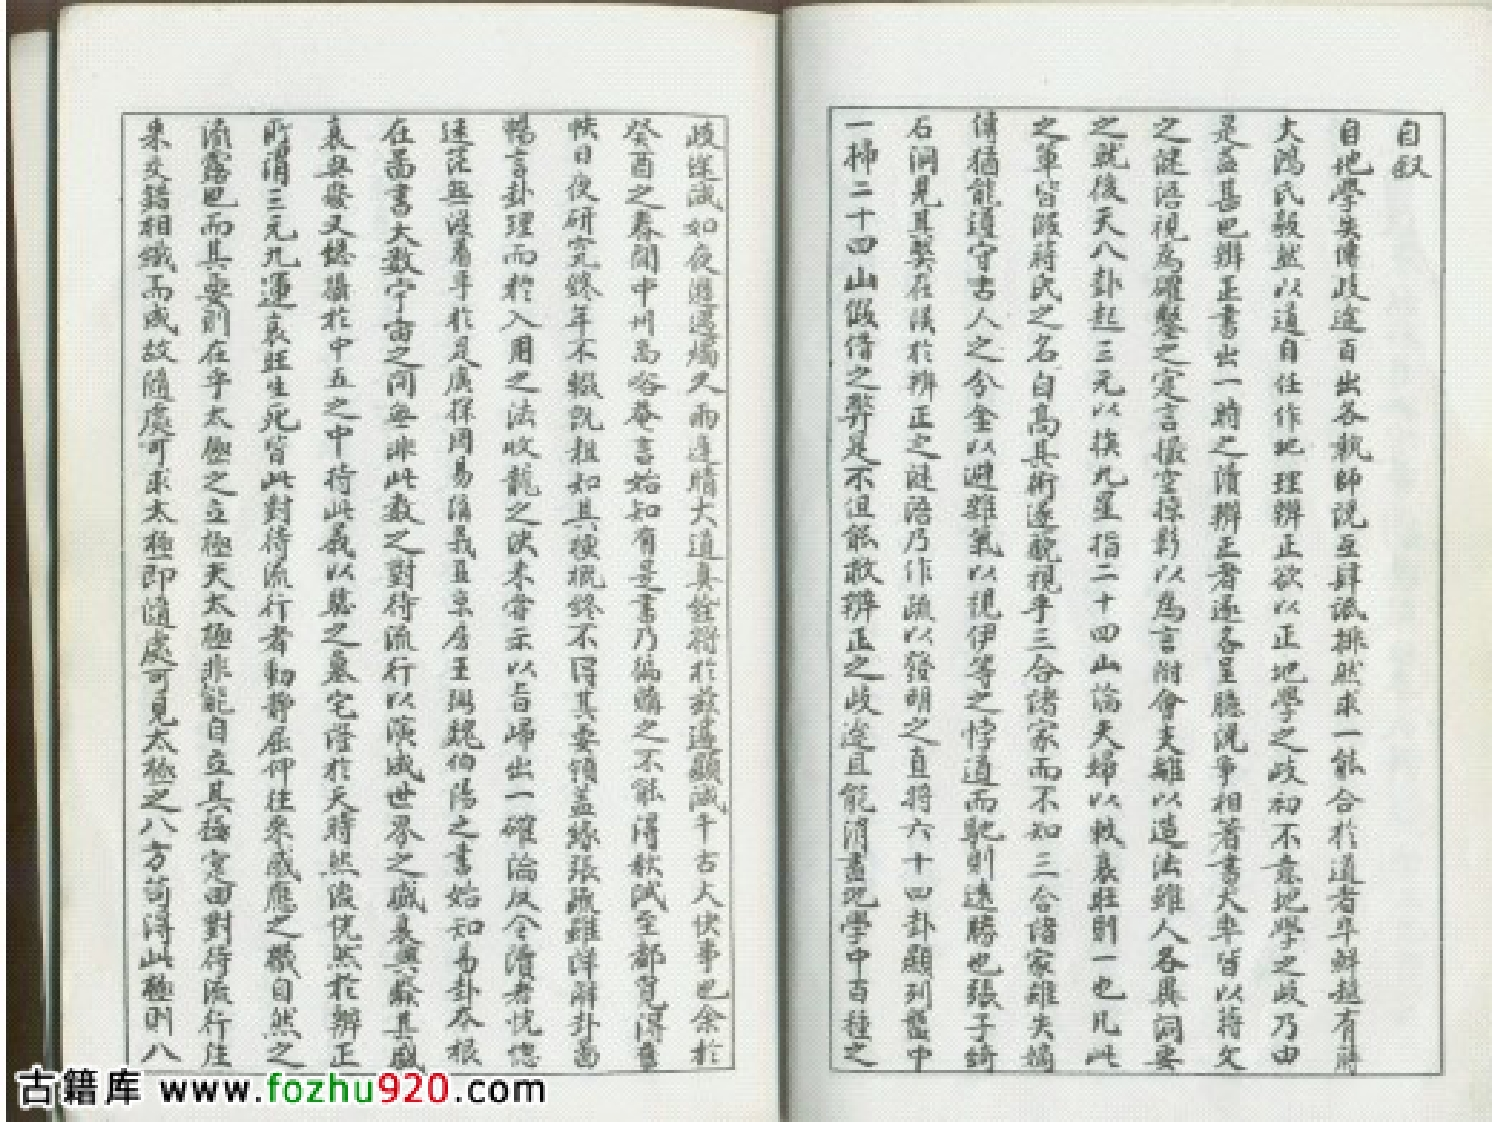 自叙
自地學失傳歧途百出各執師說互肆詆排然求一能合於道者卒鮮越有蔣
大鴻氏毅然以道自任作地理辨正欲以正地學之歧初不意地學之歧乃由
是益甚也辨正書出一時之讀辨正者遂各呈臆說爭相著書大率皆以蔣文
之謎語視為確鑿之定言撮空掠影以為言附會支離以造法雖人各異詞要
之就後天八卦起三元以挨九星指二十四山論夫婦以較衰旺則一也凡此
之輩皆假蔣氏之名自高其術遂藐視乎三合諸家而不知三合諸家雖失嫡
傳猶能遵守古人之分金以避雜氣以視伊等之悖道而馳則遠勝也張子綺
石洞見其弊在誤於辨正之謎語乃作疏以發明之直將六十四卦顯列盤中
一掃二十四山假借之弊是不但能救辨正之歧途且能消盡地學中百種之
歧途誠如夜遊遇燭久雨逢晴大道真詮得於茲遂顯誠千古大快事也余於
癸酉之春聞中州高 菴言始知有是書乃徧購之不能得秋試至都覓得書
帙日夜研究終年不輟既粗知其梗概終不得其要領蓋緣張疏雖詳解卦圖
暢言卦理而於入用之法收龍之訣未嘗示以旨歸出一確論反令讀者恍惚
迷茫無從着手於是廣採周易演義及京房王弼魏伯陽之書始知易卦本根
在圖書大數宇宙之間無非此數之對待流行以演成世界之盛衰興廢其盛
衰興廢又總攝於中五之中待此義以驗之墓宅證於天時然後恍然於辨正
所謂三元九運衰旺生死皆此對待流行者動靜屈伸往來感應之機自然之
流露也而其要則在乎太極之立極夫太極非能自立其極寔由對待流行往
來交錯相織而成故隨處可求太極即隨處可見太極之八方苟得此極則八
古籍库 www.fozhu920.com